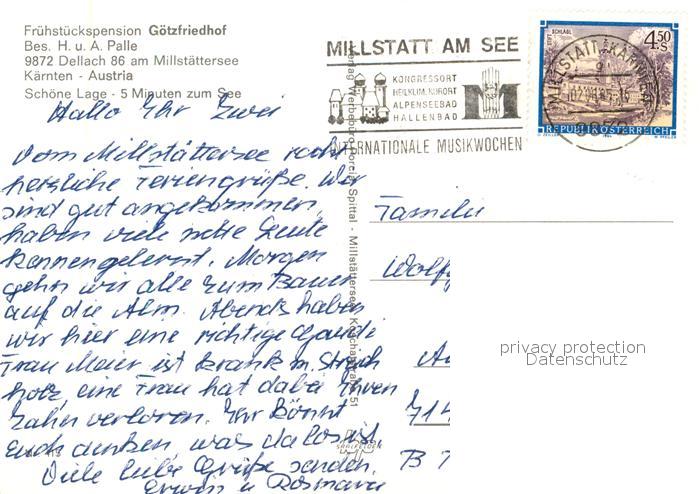 Frühstückspension Götzfriedhof
Bes. H. u. A. Palle
9872 Dellach 86 am Millstättersee
Kärnten - Austria
Schöne Lage - 5 Minuten zum See
Hallo Ihr Zwei
Vom Millstättersee recht
herzliche Feriengrüße. Wir
sind gut angekommen,
haben viele nette Leute
kennengelernt. Morgen
gehn wir alle zum Bauer
auf die Alm. Abends haben
wir hier eine richtige Gaudi
Frau Meier ist krank m. Stroh
holz, eine Frau hat dabei Ihren
Zahn verloren. Ihr könnt
euch denken, was da los ist.
Viele liebe Grüße senden.
Erwin u Rosmarie
MILLSTATT AM SEE
KONGRESSORT
HEILKLIM. KURORT
ALPENSEEBAD
HALLENBAD
INTERNATIONALE MUSIKWOCHEN
MILLSTATT, KÄRNTEN
4.50 S
REPUBLIK ÖSTERREICH
Spittal - Millstättersee
Familie
Wolf
71
privacy protection
Datenschutz